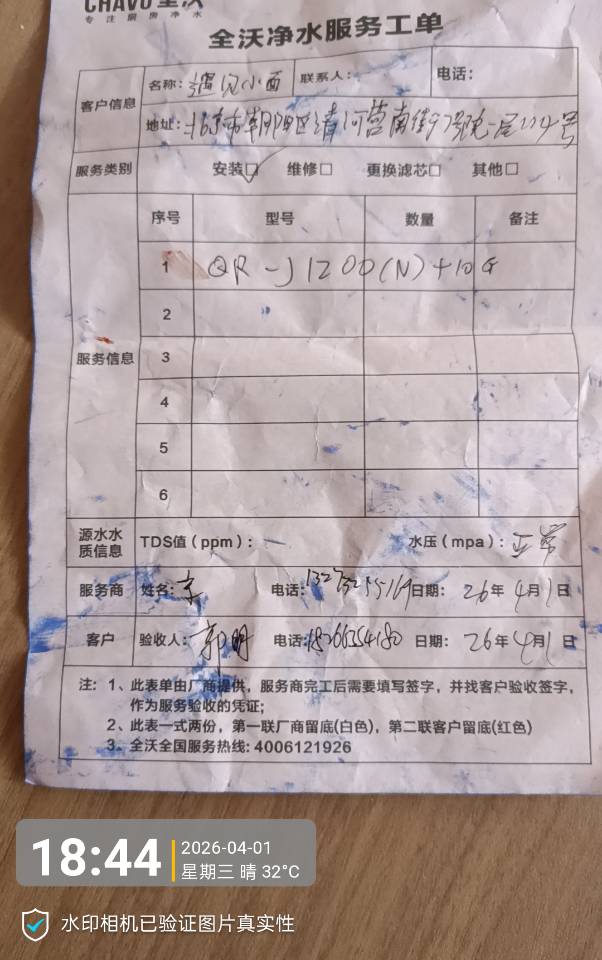 CHAVO 全沃
专注厨房净水
全沃净水服务工单
客户信息
名称：遇见小面 联系人： 电话：
地址：北京市朝阳区清河营南街7号院一层114号
服务类别 安装☑ 维修□ 更换滤芯□ 其他□
服务信息
序号 型号 数量 备注
1 QR-J1200(N)+10G
2
3
4
5
6
源水水质信息 TDS值（ppm）： 水压（mpa）：正常
服务商 姓名： 电话： 日期：26年4月1日
客户 验收人：郭明 电话： 日期：26年4月1日
注：1、此表单由厂商提供，服务商完工后需要填写签字，并找客户验收签字，
作为服务验收的凭证；
2、此表一式两份，第一联厂商留底(白色)，第二联客户留底(红色)
3、全沃全国服务热线: 4006121926
18:44
2026-04-01
星期三 晴 32°C
水印相机已验证图片真实性